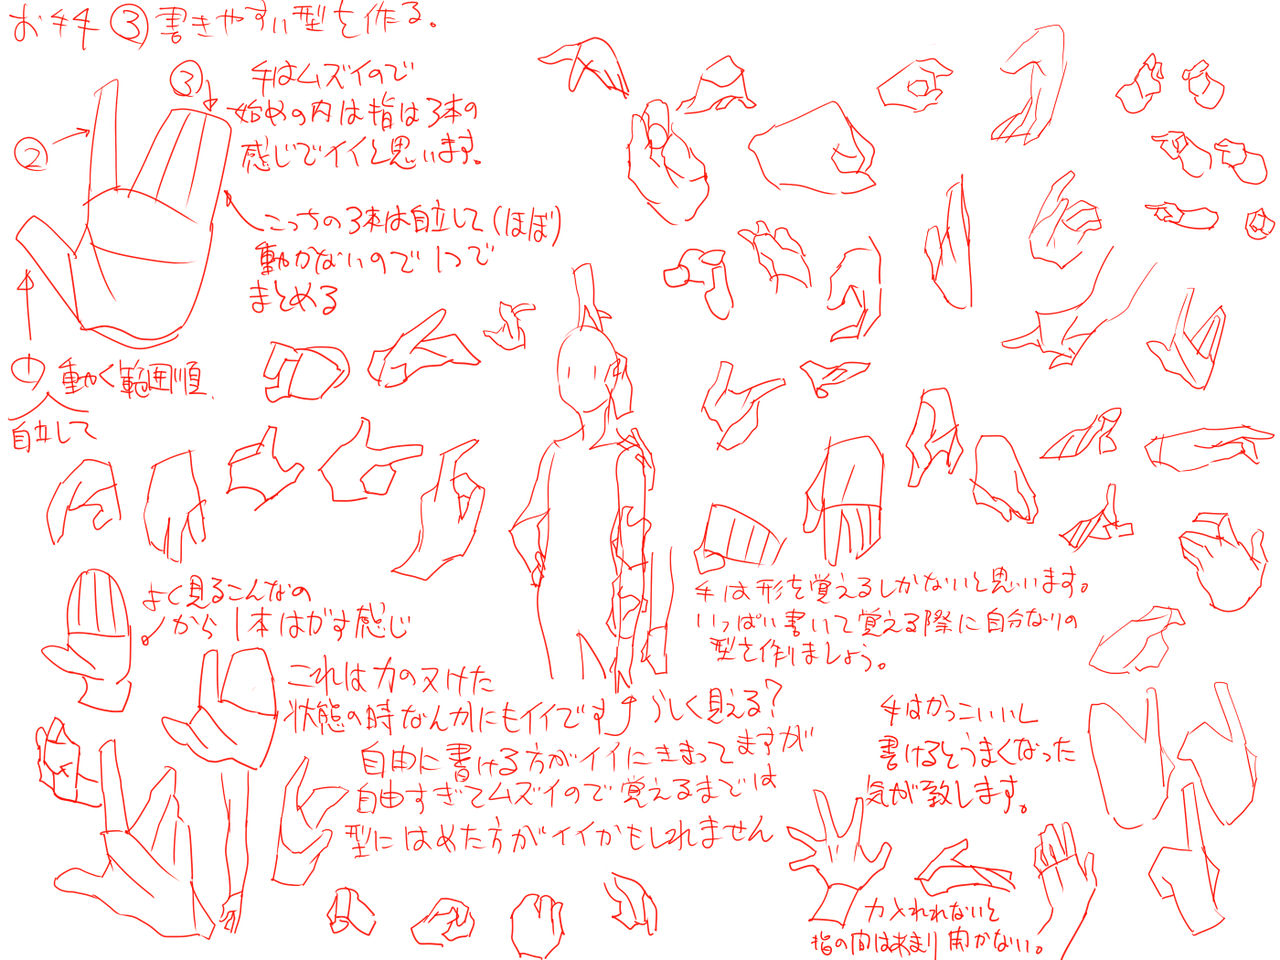 お手々 ③書きやすい型を作る。
③
手はムズイので
始めの内は指は3本の
感じでイイと思います。
②
こっちの3本は自立して(ほぼ)
動かないので1つで
まとめる
① 動かく範囲順
自立して
よく見るこんなの
から1本はがす感じ
これは力のヌけた
状態の時なんかにもイイです
らしく見える?
自由に書ける方がイイにきまってますが
自由すぎてムズイので覚えるまでは
型にはめた方がイイかもしれません
手は形を覚えるしかないと思います。
いっぱい書いて覚える際に自分なりの
型を作りましょう。
手はかっこいいし
書けるとうまくなった
気が致します。
力入れれないと
指の間はあまり開かない。